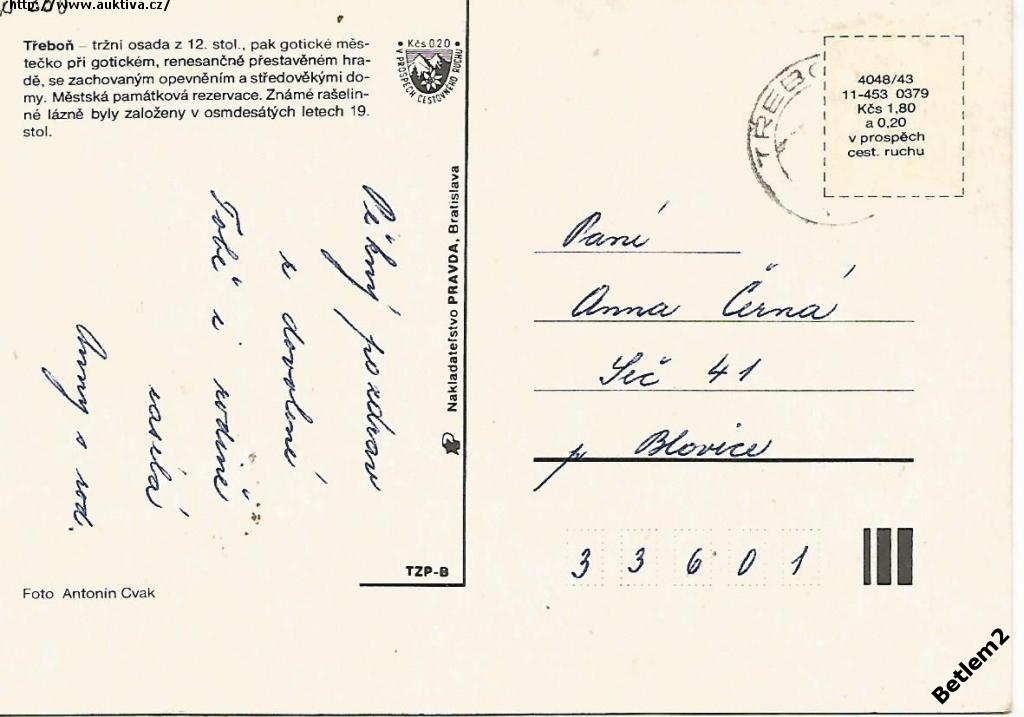 http://www.auktiva.cz/
Třeboň – tržní osada z 12. stol., pak gotické měs-
tečko při gotickém, renesančně přestavěném hra-
dě, se zachovaným opevněním a středověkými do-
my. Městská památková rezervace. Známé rašelin-
né lázně byly založeny v osmdesátých letech 19.
stol.
• Kčs 0.20 •
V PROSPĚCH CESTOVNÉHO RUCHU
Pěkný pozdrav
z dovolené
Tobě i rodině
zasílá
s rod.
Foto Antonín Cvak
Nakladateľstvo PRAVDA, Bratislava
TZP-B
TŘEBO
4048/43
11-453 0379
Kčs 1,80
a 0,20
v prospěch
cest. ruchu
Paní
Anna Černá
Seč 41
p Blovice
33601
Betlem2